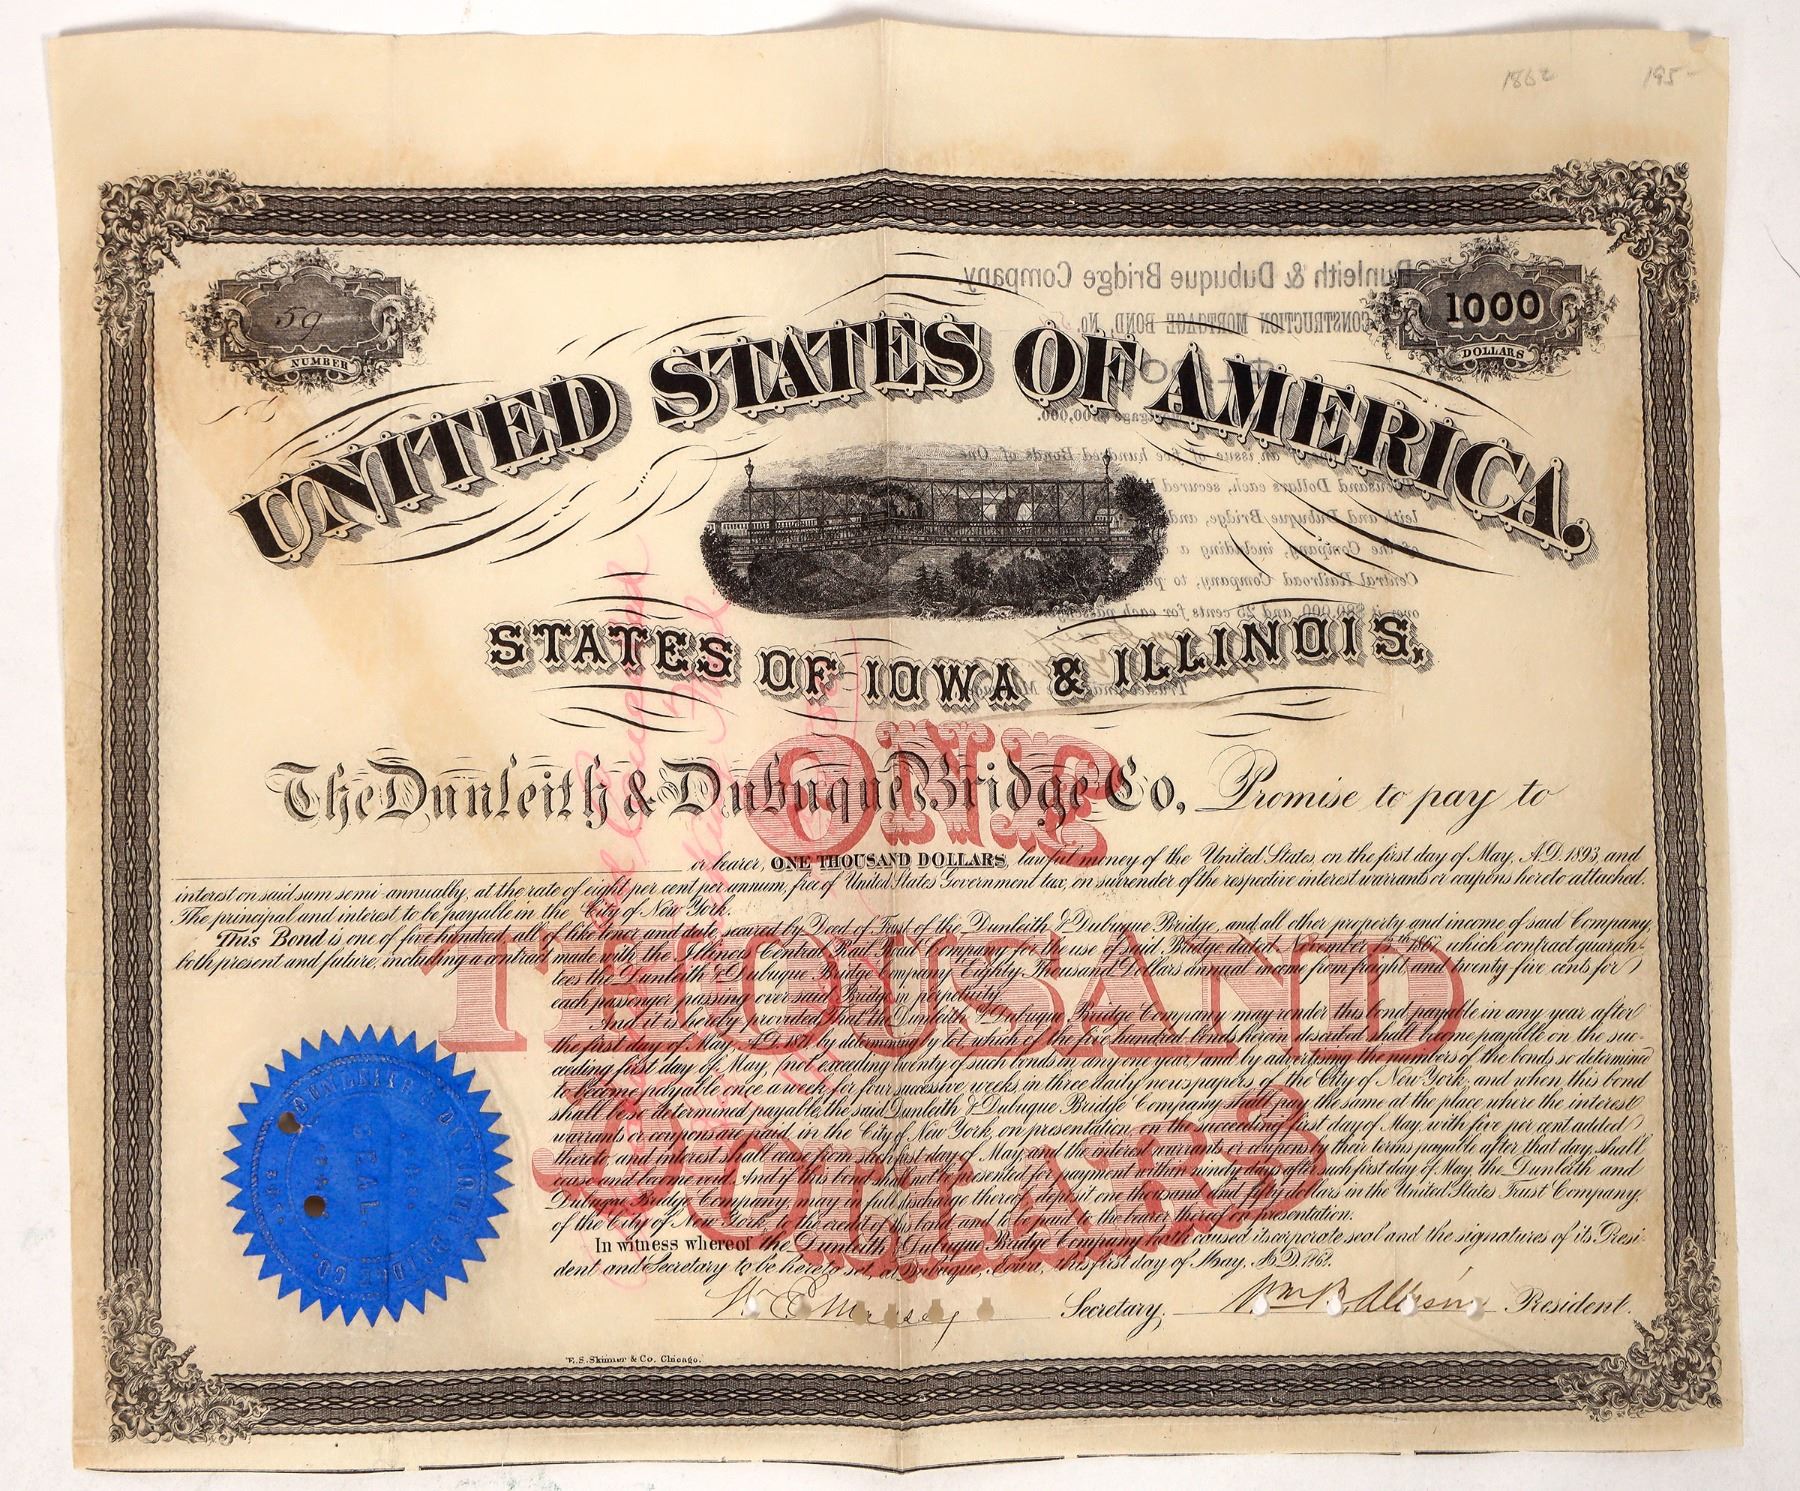 1862 195-
59
NUMBER
1000
DOLLARS
Dunleith & Dubuque Bridge Company.
CONSTRUCTION MORTGAGE BOND, No.
UNITED STATES OF AMERICA.
an issue of five hundred Bonds of One
Thousand Dollars each, secured
leith and Dubuque Bridge, and
of the Company, including a
Central Railroad Company, to
over it $80,000, and 25 cents for each passenger
STATES OF IOWA & ILLINOIS,
The Dunleith & Dubuque Bridge Co, Promise to pay to
ONE
THOUSAND
DOLLARS
or bearer, ONE THOUSAND DOLLARS, lawful money of the United States, on the first day of May, A.D. 1893, and
interest on said sum semi-annually, at the rate of eight per cent per annum, free of United States Government tax, on surrender of the respective interest warrants or coupons hereto attached.
The principal and interest to be payable in the City of New York.
This Bond is one of five hundred, all of like tenor and date, secured by Deed of Trust of the Dunleith & Dubuque Bridge, and all other property and income of said Company,
both present and future, including a contract made with the Illinois Central Rail Road Company for the use of said Bridge dated November which contract guaran-
tees the Dunleith & Dubuque Bridge Company Eighty Thousand Dollars annual income from freight and twenty five cents for
each passenger passing over said Bridge in perpetuity.
And it is hereby provided, That the Dunleith & Dubuque Bridge Company may render this bond payable in any year after
the first day of May, A.D. by determining by lot which of the five hundred bonds herein described shall become payable on the suc-
ceeding first day of May, (not exceeding twenty of such bonds in any one year) and by advertising the numbers of the bonds so determined
to become payable once a week, for four successive weeks, in three daily newspapers of the City of New York, and when this bond
shall be so determined payable, the said Dunleith & Dubuque Bridge Company shall pay the same at the place where the interest
warrants or coupons are paid, in the City of New York, on presentation, on the succeeding first day of May, with five per cent added
thereto, and interest shall cease from such first day of May, and the interest warrants or coupons by their terms payable after that day, shall
cease and become void. And if this bond shall not be presented for payment within ninety days after such first day of May, the Dunleith and
Dubuque Bridge Company may in full discharge thereof, deposit one thousand and fifty dollars in the United States Trust Company,
of the City of New York, to the credit of this bond and to be paid to the bearer thereof on presentation.
In witness whereof the Dunleith & Dubuque Bridge Company hath caused its corporate seal and the signatures of its Presi-
dent and Secretary to be hereto set, at Dubuque, Iowa, this first day of May, A.D. 1868.
DUNLEITH & DUBUQUE BRIDGE CO.
SEAL
Secretary, Wm B. Allison President.
E. S. Skinner & Co. Chicago.